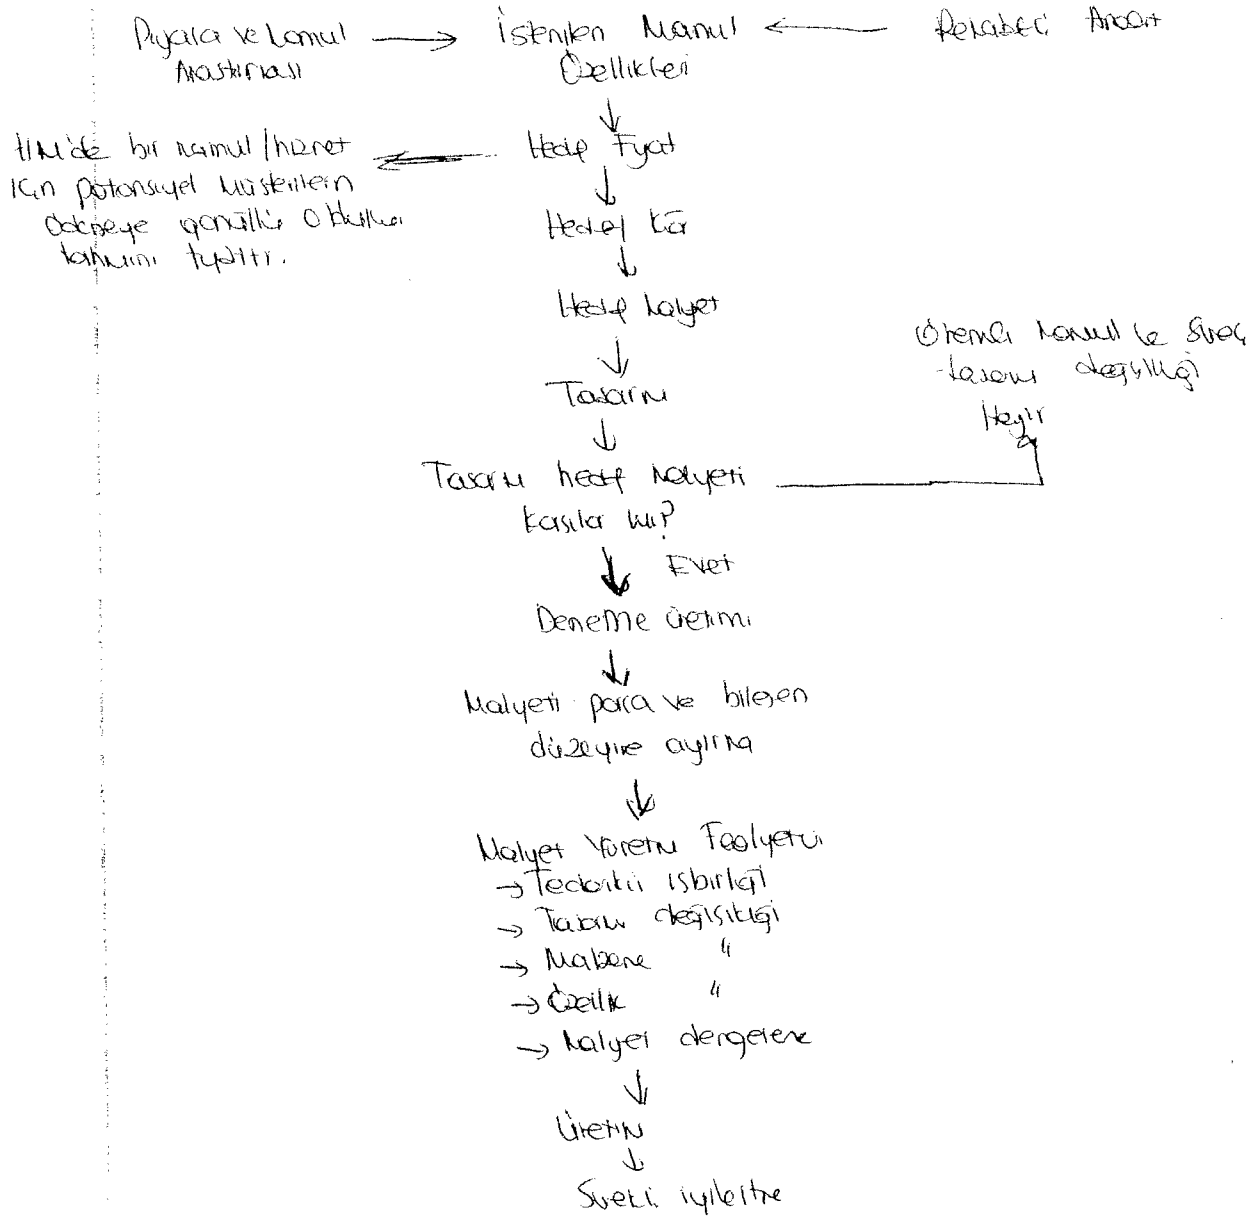 Piyasa ve Mamul → İstenilen Mamul ← Rekabetçi Analizi
Araştırması Özellikleri
↓
Hedef Fiyat
HM'de bir mamul/hizmet
için potansiyel müşterilerin
ödemeye gönüllü oldukları
tahmini fiyattır.
↓
Hedef Kâr
↓
Hedef Maliyet
↓
Tasarım
↓
Tasarım hedef maliyeti
karşılar mı?
Hayır
Önemli mamul ve süreç
tasarım değişikliği
↓ Evet
Deneme üretimi
↓
Maliyeti parça ve bileşen
düzeyine ayırma
↓
Maliyet Yönetim Faaliyetleri
→ Tedarikçi işbirliği
→ Tasarım değişikliği
→ Malzeme "
→ Özellik "
→ Maliyet dengeleme
↓
Üretim
↓
Sürekli iyileştirme